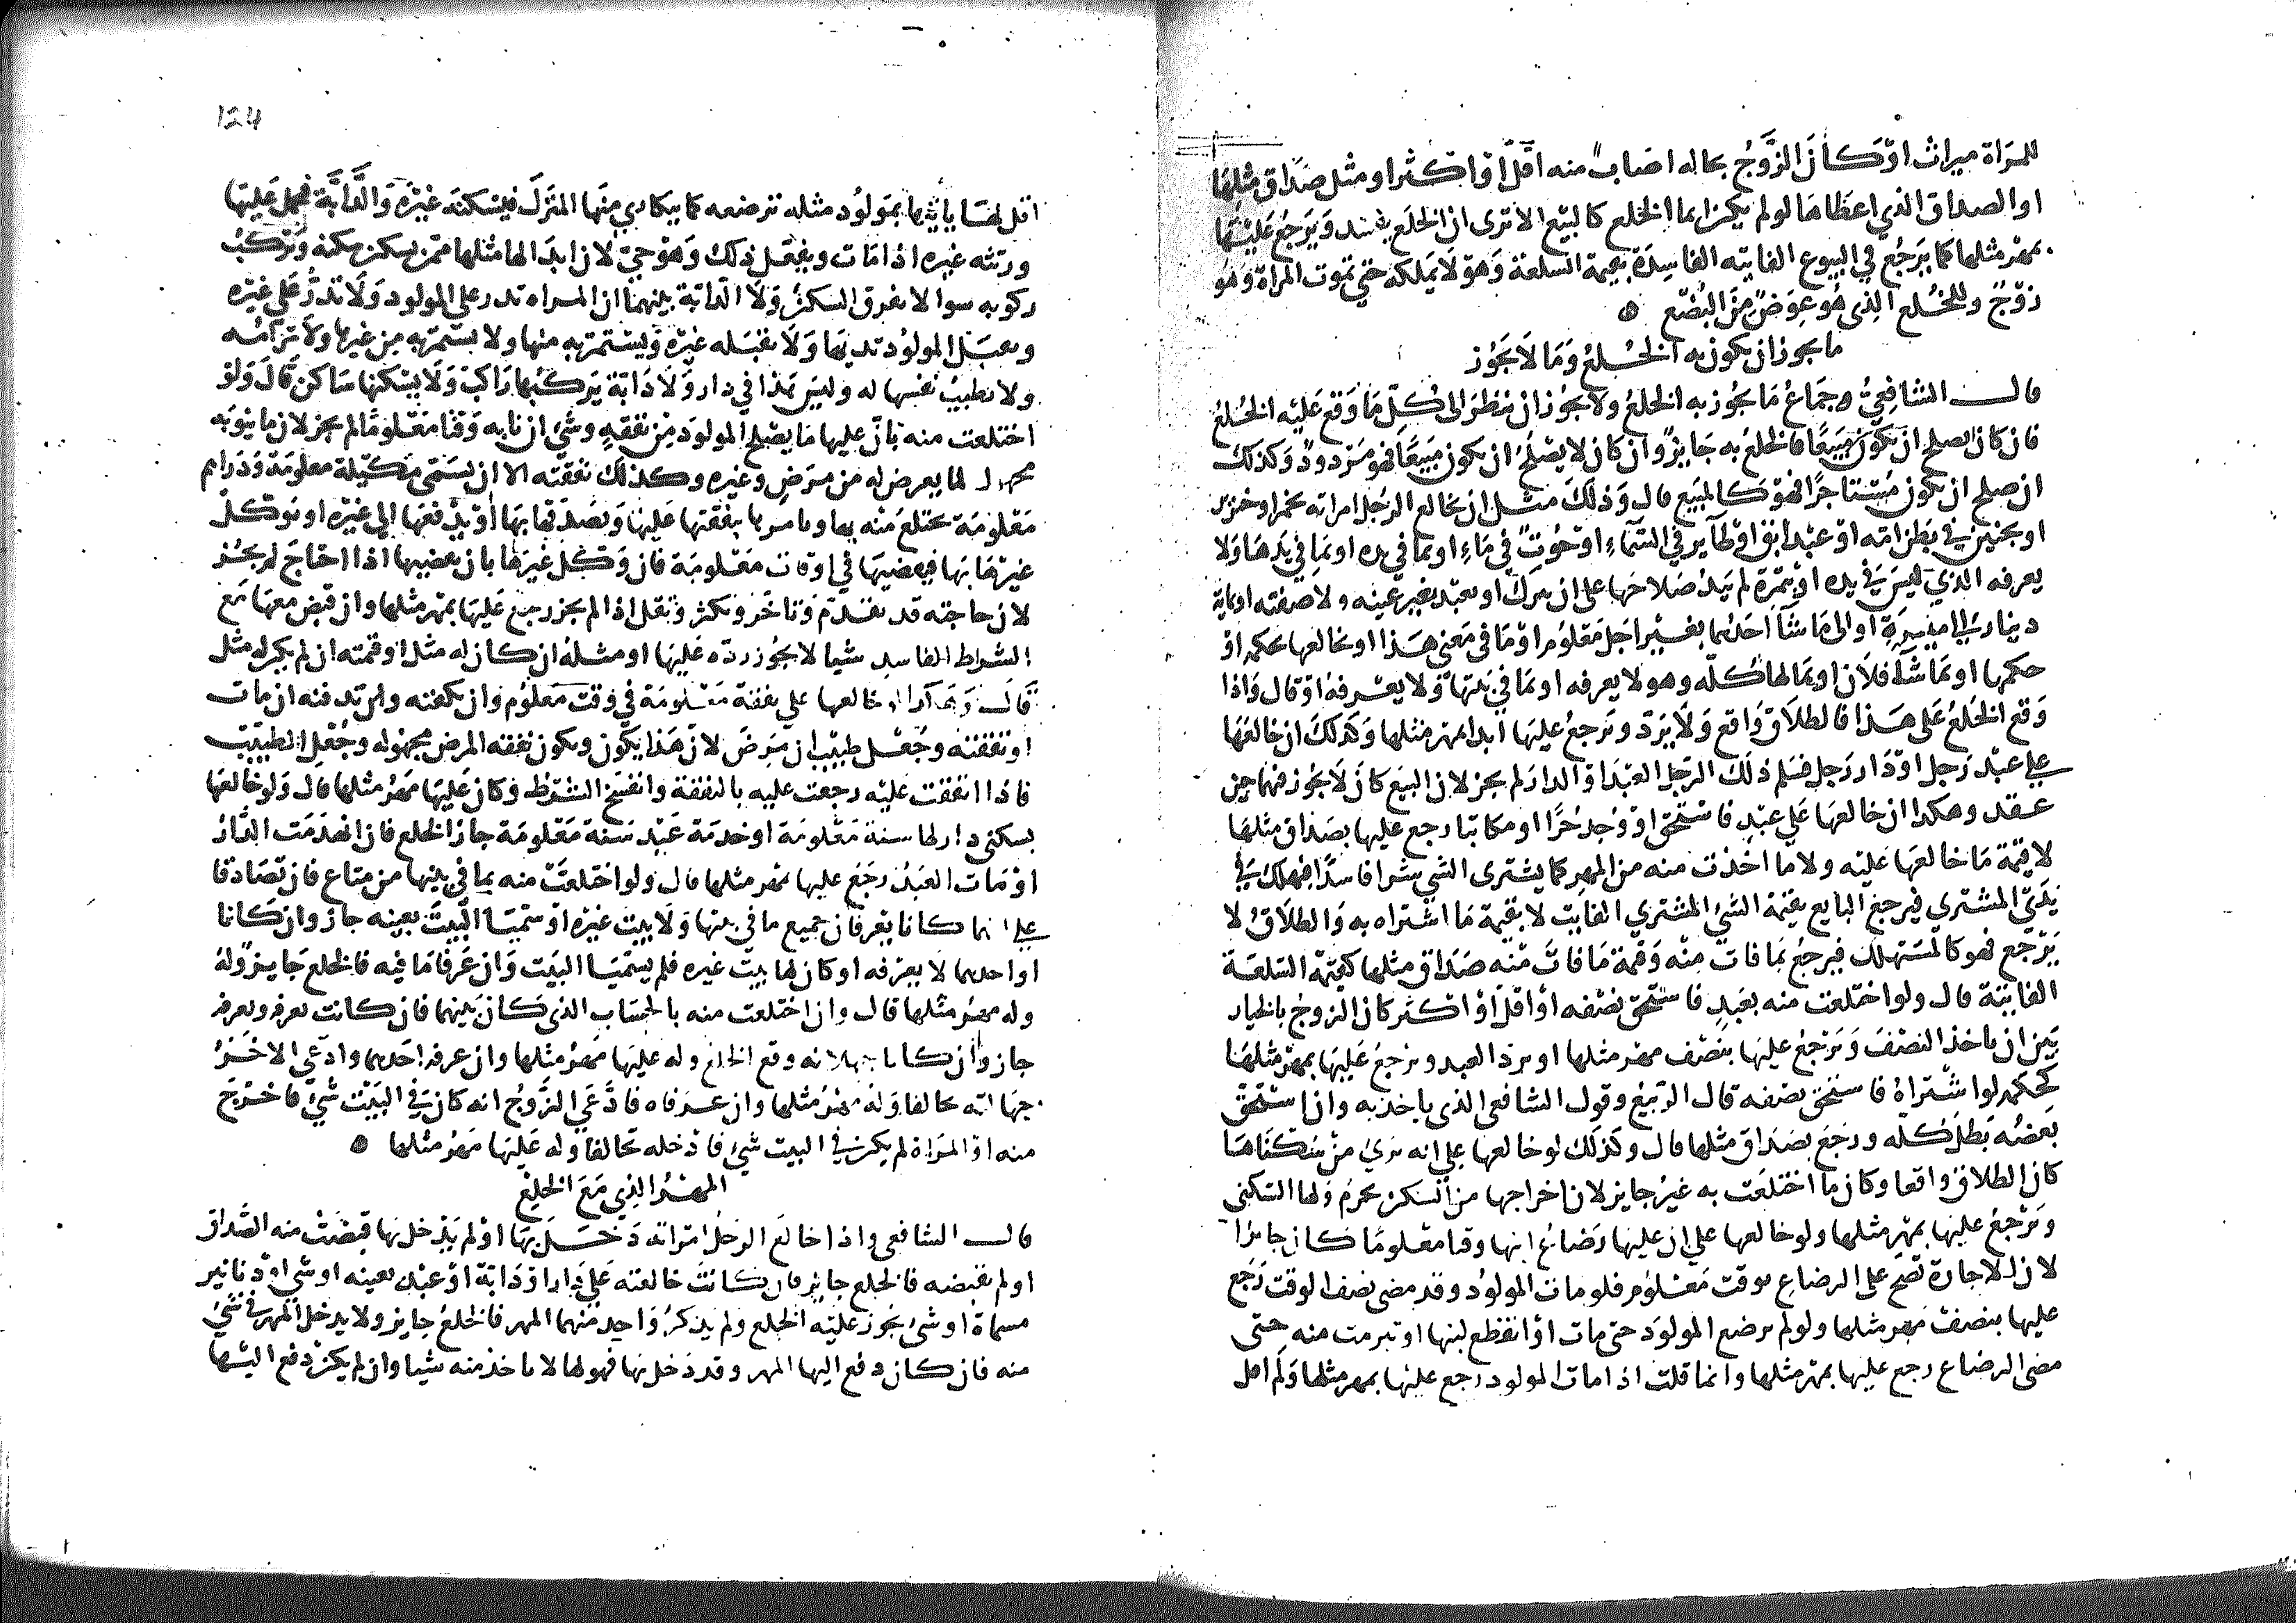 للمراة ميراث او كان الزوج بحاله اصاب منه اقل او اكثر او مثل صداق مثلها
او الصداق الذي اعطاها لو لم يكن انما الخلع كالبيع الا ترى ان الخلع يفسد ويرجع عليها
بمهر مثلها كما يرجع في البيوع الفايته الفاسدة بقيمة السلعة وهو لا يملكه حتى تموت المراة وهو
زوج وللخلع الذي هو عوض من البضع
ما يجوز ان يكون به الخلع وما لا يجوز
قال الشافعي وجماع ما يجوز به الخلع ولا يجوز ان ينظر الى كل ما وقع عليه الخلع
فان كان يصلح ان يكون مبيعا فالخلع به جايز وان كان لا يصلح ان يكون مبيعا فهو مردود وكذلك
ان صلح ان يكون مستاجرا فهو كالمبيع قال وذلك مثل ان يخالع الرجل امراته بخمر او خنزير
او بجنين في بطن امته او عبد ابق او طاير في السماء او حوت في ماء او بما في يده او بما في يدها ولا
يعرفه الذي ليس في يده او بثمرة لم يبد صلاحها على ان يترك او بعبد بغير عينه ولا صفته او بماية
دينار الى ميسرة او الى ما شا احدهما بغير اجل معلوم او ما في معنى هذا او يخالعها بحكمه او
حكمها او بما شا فلان او بمالها كله وهو لا يعرفه او بما في بيتها ولا يعرفه او قال واذا
وقع الخلع على هذا فالطلاق واقع ولا يرد ويرجع عليها ابدا بمهر مثلها وكذلك ان خالعها
على عبد رجل او دار رجل فسلم ذلك الرجل العبد او الدار لم يجز لان البيع كان لا يجوز فيهما حين
عقد وهكذا ان خالعها على عبد فاستحق او وجد حرا او مكاتبا رجع عليها بصداق مثلها
لا قيمة ما خالعها عليه ولا ما اخذت منه من المهر كما يشترى الشي شرا فاسدا فيهلك في
يدي المشتري فيرجع البايع بقيمة الشي المشتري الفايت لا بقيمة ما اشتراه به والطلاق لا
يرجع فهو كالمستهلك فيرجع بما فات منه وقيمة ما فات منه صداق مثلها كقيمة السلعة
الفايتة قال ولو اختلعت منه بعبد فاستحق نصفه او اقل او اكثر كان الزوج بالخيار
بين ان ياخذ النصف ويرجع عليها بنصف مهر مثلها او يرد العبد ويرجع عليها بمهر مثلها
كحكمه لو اشتراه فاستحق نصفه قال الربيع وقول الشافعي الذي ياخذ به وان استحق
بعضه بطل كله ورجع بصداق مثلها قال وكذلك لو خالعها على انه بري من سكناها
كان الطلاق واقعا وكان ما اختلعت به غير جايز لان اخراجها من السكن محرم ولها السكنى
ويرجع عليها بمهر مثلها ولو خالعها على ان عليها رضاع ابنها وقتا معلوما كان جايزا
لان الاجارة تصح على الرضاع بوقت معلوم فلو مات المولود وقد مضى نصف الوقت رجع
عليها بنصف مهر مثلها ولو لم ترضع المولود حتى مات او انقطع لبنها او تبرمت منه حتى
مضى الرضاع رجع عليها بمهر مثلها وانما قلت اذا مات المولود رجع عليها بمهر مثلها ولم اقل
124
اقل لها ياتيها بمولود مثله ترضعه كما يتكارى منها المنزل فيسكنه غيره والدابة فيحمل عليها
ورثته غيره اذا مات ويفعل ذلك وهو حي لان ابدالها مثلها ممن يسكن سكنه ويركب
ركوبه سوا لا يفرق السكن ولا الدابة بينهما ان المراه تدر على المولود ولا تدر على غيره
ويقبل المولود ثديها ولا يقبله غيره ويستمريه منها ولا يستمريه من غيرها ولا ترامه
ولا تطيب نفسها له وليس هذا في دار ولا دابة يركبها راكب ولا يسكنها ساكن قال ولو
اختلعت منه بان عليها ما يصلح المولود من نفقة وشي ان نابه وقتا معلوما لم يجز لان ما ينوبه
مجهول لما يعرض له من مرض وغيره وكذلك نفقته الا ان يسمى مكيلة معلومة ودراهم
معلومة تختلع منه بها ويامرها بنفقتها عليه ويصدقها بها او يدفعها الى غيره او يوكل
غيرها بها فيقبضها في اوقات معلومة فان وكل غيرها بان يقبضها اذا احتاج لم يجز
لان حاجته قد تتقدم وتتاخر وتكثر وتقل اذا لم يجز رجع عليها بمهر مثلها وان قبض معها مع
الشرط الفاسد شيا لا يجوز رده عليها او مثله ان كان له مثل او قيمته ان لم يكن له مثل
قال وهكذا لو خالعها على نفقة معلومة في وقت معلوم وان تكفنه وان تدفنه ان مات
او نفقته وجعل طبيب ان مرض لان هذا يكون ويكون نفقة المرض مجهوله وجعل الطبيب
فاذا انفقت عليه رجعت عليه بالنفقة وانفسخ الشرط وكان عليها مهر مثلها قال ولو خالعها
بسكنى دار لها سنة معلومة او خدمة عبد سنة معلومة جاز الخلع فان انهدمت الدار
او مات العبد رجع عليها بمهر مثلها قال ولو اختلعت منه بما في بيتها من متاع فان تصادقا
على انهما كانا يعرفان جميع ما في بيتها ولا بيت غيره او سميا البيت بعينه جاز وان كانا
او احدهما لا يعرفه او كان لها بيت غيره فلم يسميا البيت وان عرفا ما فيه فالخلع جايز وله
وله مهر مثلها قال وان اختلعت منه بالحساب الذي كان بينهما فان كانت تعرفه ويعرفه
جاز وان كانا يجهلانه وقع الخلع وله عليها مهر مثلها وان عرفه احدهما وادعى الاخر
جهالته تحالفا وله مهر مثلها وان عرفاه فادعى الزوج انه كان في البيت شي فاخرج
منه او المراة لم يكن في البيت شي فادخله تحالفا وله عليها مهر مثلها
المهر الذي مع الخلع
قال الشافعي واذا خالع الرجل امراته دخل بها او لم يدخل بها قبضت منه الصداق
او لم تقبضه فالخلع جايز فان كانت خالعته على دار او دابة او عبد بعينه او شي او دنانير
مسماة او شي يجوز عليه الخلع ولم يذكر واحد منهما المهر فالخلع جايز ولا يدخل المهر في شي
منه فان كان دفع اليها المهر وقد دخل بها فهو لها لا ياخذ منه شيا وان لم يكن دفع اليها